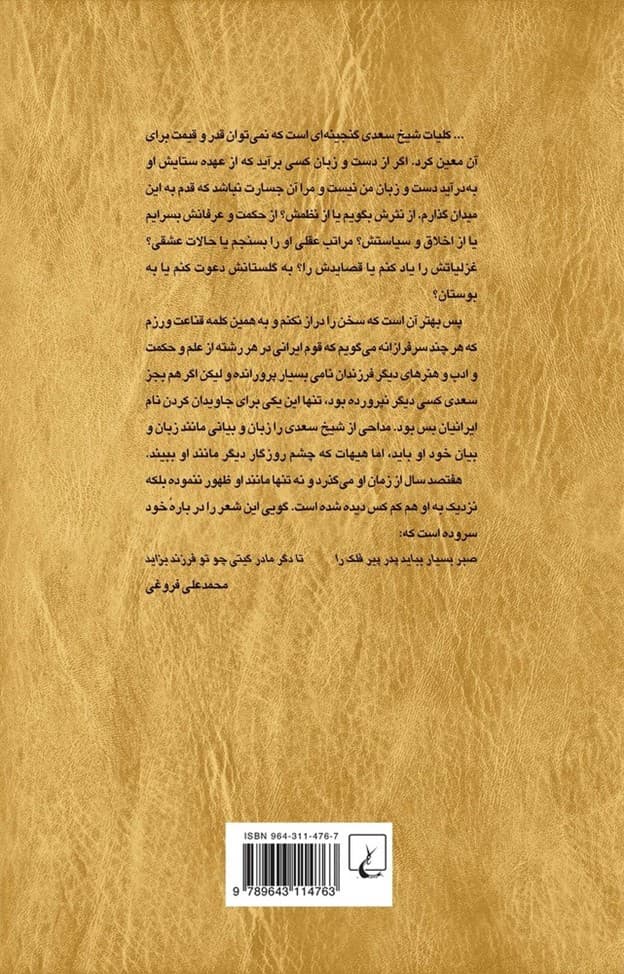 ... کلیات شیخ سعدی گنجینه‌ای است که نمی‌توان قدر و قیمت برای
آن معین کرد. اگر از دست و زبان کسی برآید که از عهده ستایش او
به‌درآید دست و زبان من نیست و مرا آن جسارت نباشد که قدم به این
میدان گذارم. از نثرش بگویم یا از نظمش؟ از حکمت و عرفانش بسرایم
یا از اخلاق و سیاستش؟ مراتب عقلی او را بسنجم یا حالات عشقی؟
غزلیاتش را یاد کنم یا قصایدش را؟ به گلستانش دعوت کنم یا به
بوستان؟
پس بهتر آن است که سخن را دراز نکنم و به همین کلمه قناعت ورزم
که هر چند سرفرازانه می‌گویم که قوم ایرانی در هر رشته از علم و حکمت
و ادب و هنرهای دیگر فرزندان نامی بسیار پرورانده و لیکن اگر هم بجز
سعدی کسی دیگر نپرورده بود، تنها این یکی برای جاویدان کردن نام
ایرانیان بس بود. مداحی از شیخ سعدی را زبان و بیانی مانند زبان و
بیان خود او باید، اما هیهات که چشم روزگار دیگر مانند او ببیند.
هفتصد سال از زمان او می‌گذرد و نه تنها مانند او ظهور ننموده بلکه
نزدیک به او هم کم کس دیده شده است. گویی این شعر را در بارهٔ خود
سروده است که:
صبر بسیار بباید پدر پیر فلک را تا دگر مادر گیتی چو تو فرزند بزاید
محمدعلی فروغی
ISBN 964-311-476-7
9 789643 114763